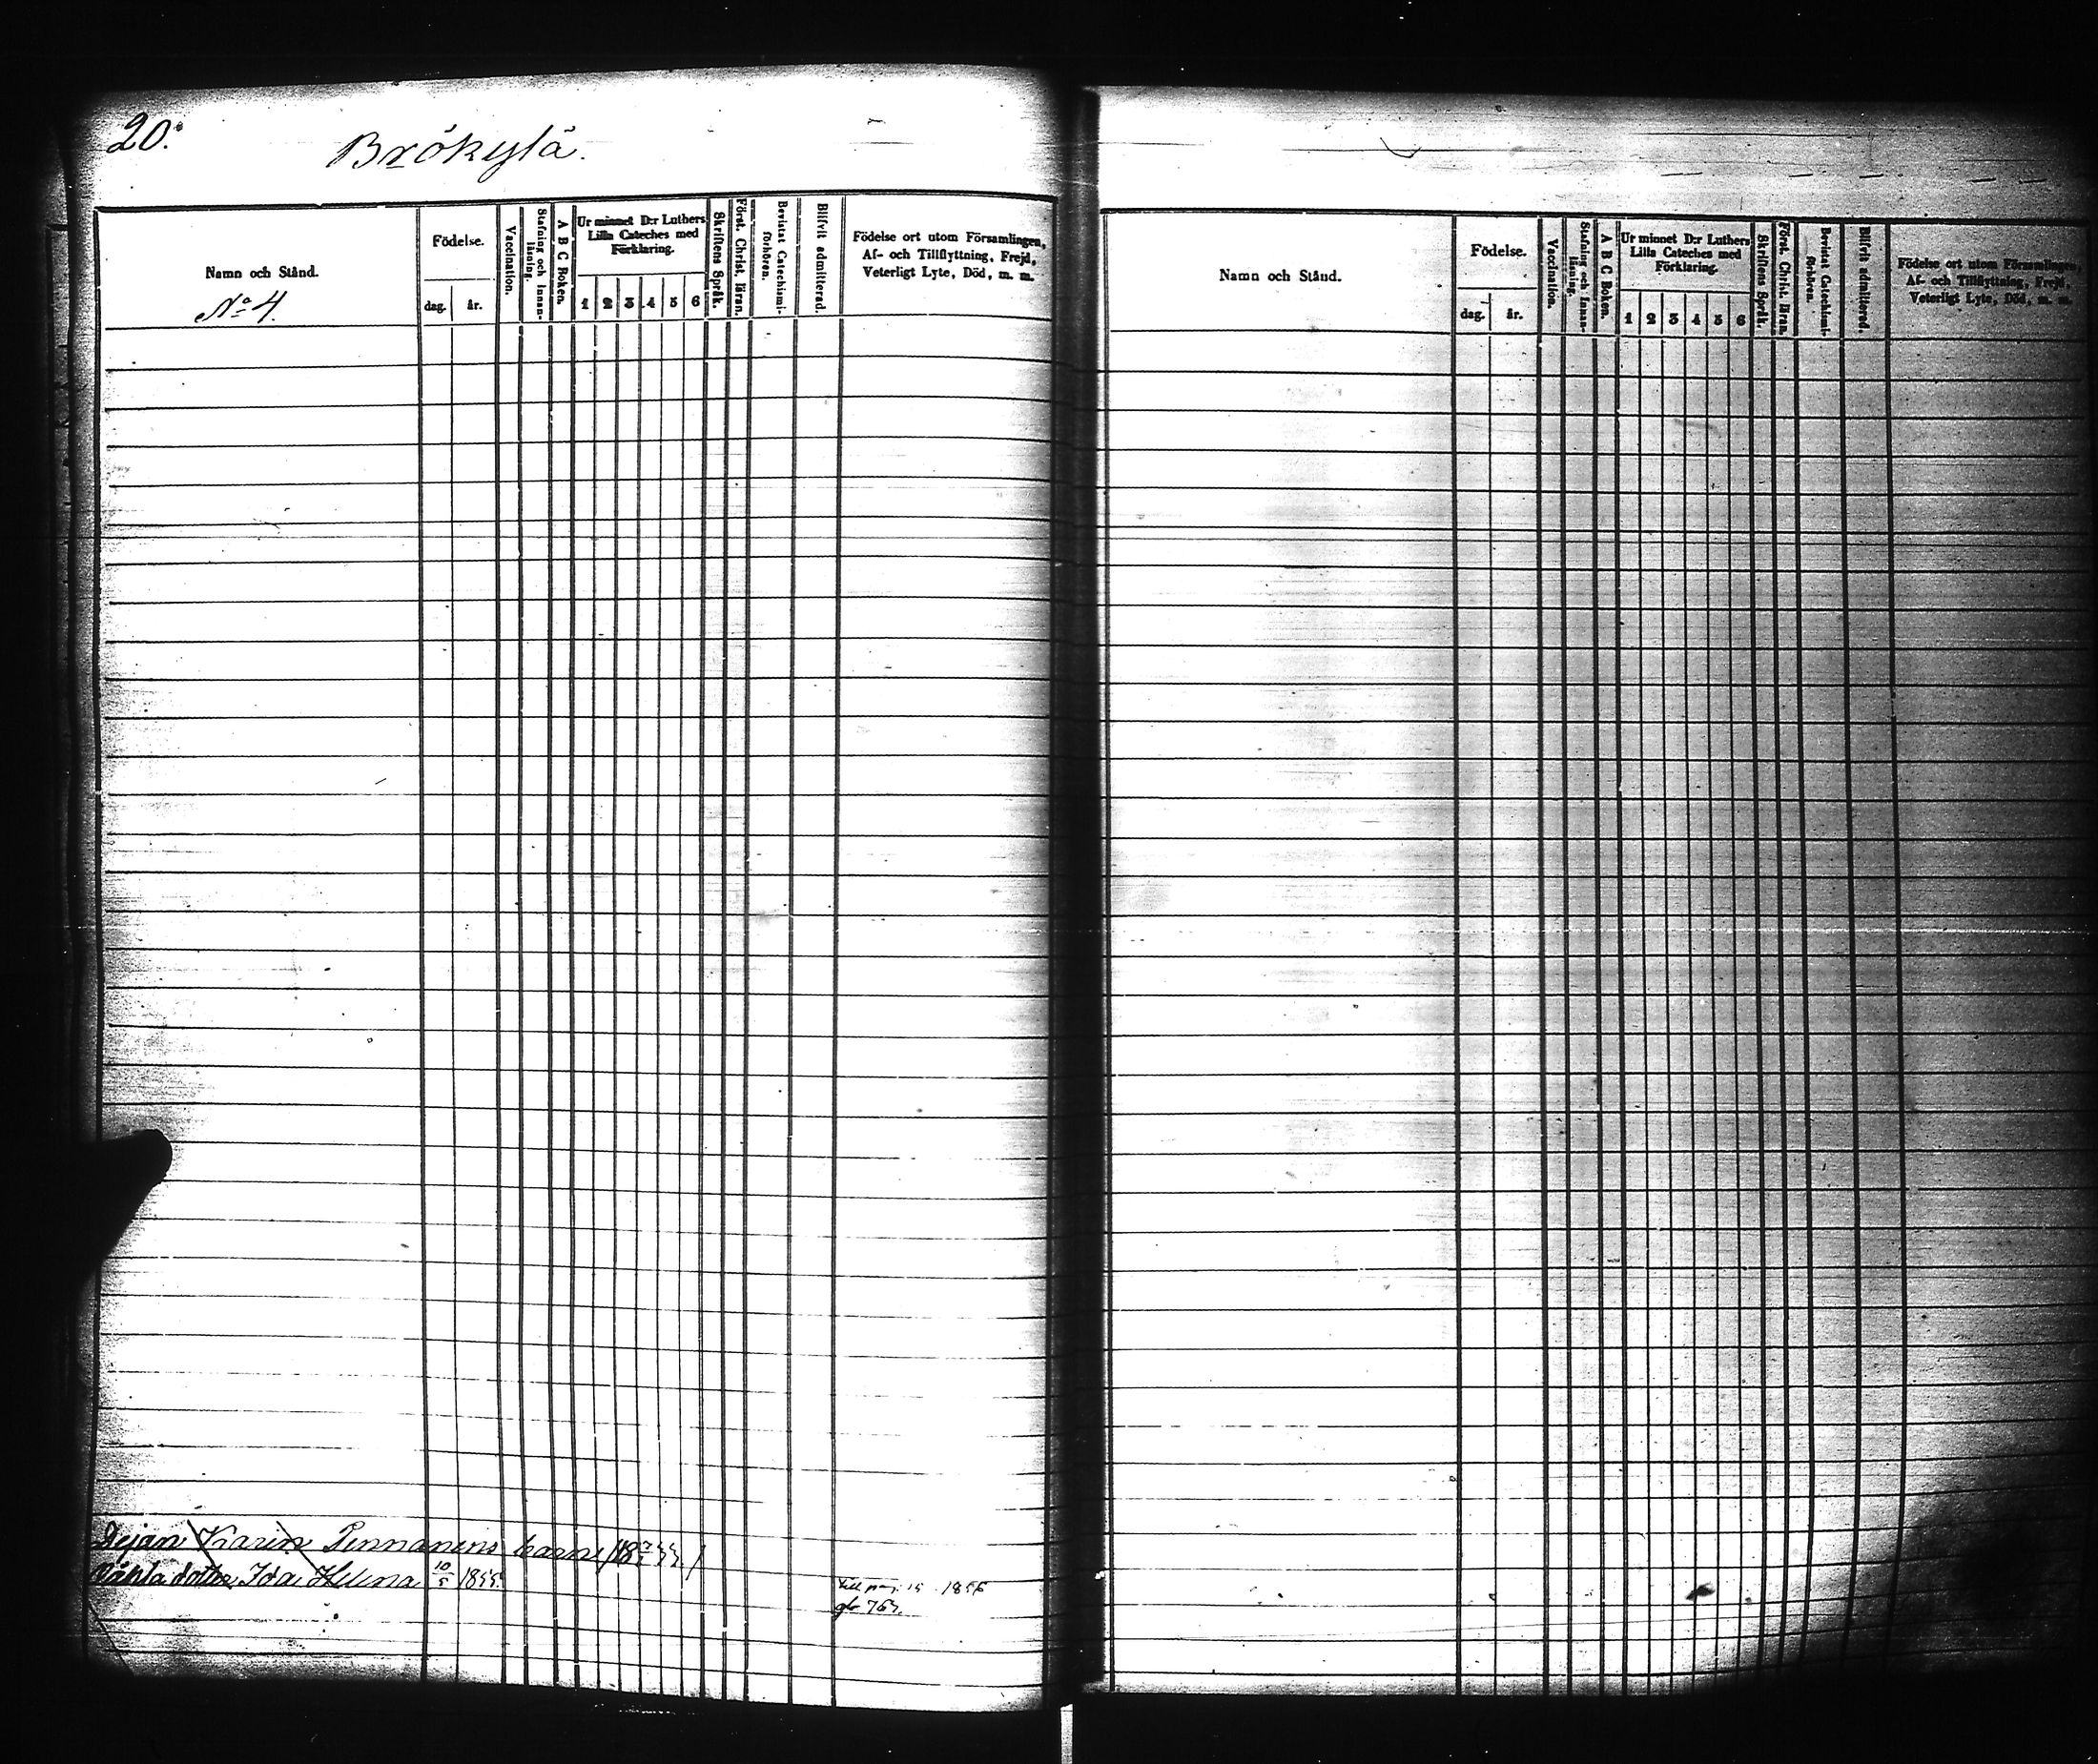 20.
Brökylä.
Namn och Stånd.
No 4.
Födelse.
dag.
år.
Vaccination.
Stafning och Innanläsning.
A B C Boken.
Ur minnet D:r Luthers
Lilla Cateches med
Förklaring.
1 2 3 4 5 6
Skriftens Språk.
Först. Christ. läran.
Bevistat Catechismiförhören.
Blifvit admitterad.
Födelse ort utom Församlingen,
Af- och Tillflyttning, Frejd,
Veterligt Lyte, Död, m. m.
Dejan Karin Pennanens barn
dotter Ida Helena 10/5 1855.
till pag. 15 1856
Namn och Stånd.
Födelse.
dag.
år.
Vaccination.
Stafning och Innanläsning.
A B C Boken.
Ur minnet D:r Luthers
Lilla Cateches med
Förklaring.
1 2 3 4 5 6
Skriftens Språk.
Först. Christ. läran.
Bevistat Catechismiförhören.
Blifvit admitterad.
Födelse ort utom Församlingen,
Af- och Tillflyttning, Frejd,
Veterligt Lyte, Död, m. m.